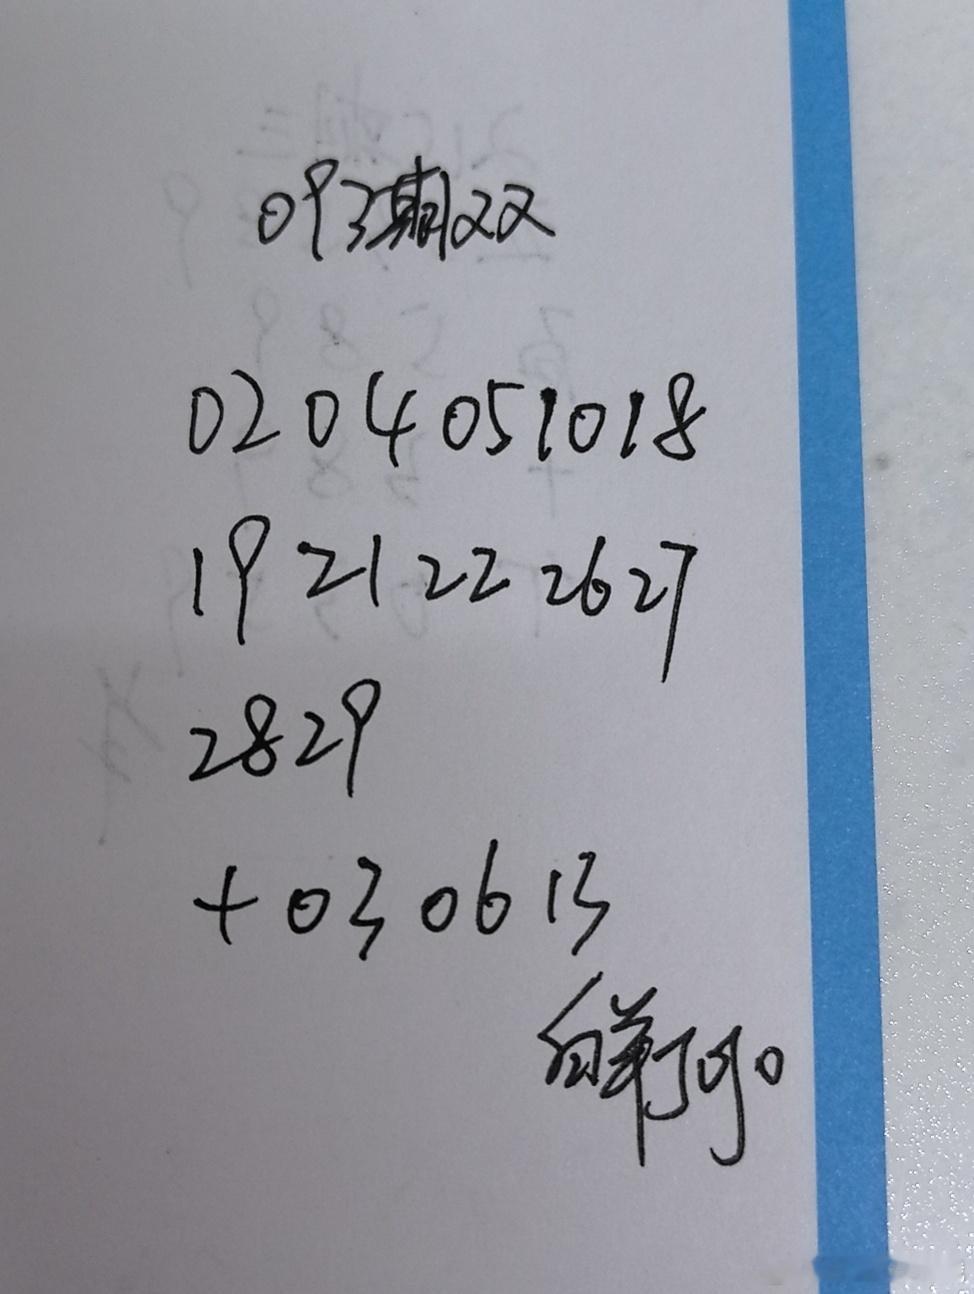 093期双
02 04 05 10 18
19 21 22 26 27
28 29
+ 03 06 13
鲜丁